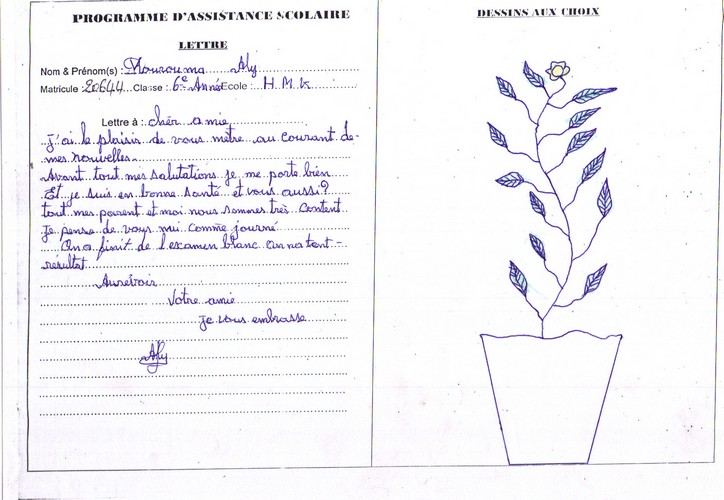 PROGRAMME D'ASSISTANCE SCOLAIRE
LETTRE
Nom & Prénom(s) : Mourouma Aly
Matricule : 20644 Classe : 6e Année Ecole : H M K
Lettre à : chér amie
J'ai le plaisis de vous mètre au courant de
mes nouvelles.
Avant tout mes salutations je me porte bien
Et je suis en bonne santé et vous aussi?
tout mes parent et moi nous sommes très content
Je pense de vous nui comme journé
On a finit de l'examen blanc on natent
résultat
Aurévoir
Votre amie
je vous embrasse
Aly
DESSINS AUX CHOIX